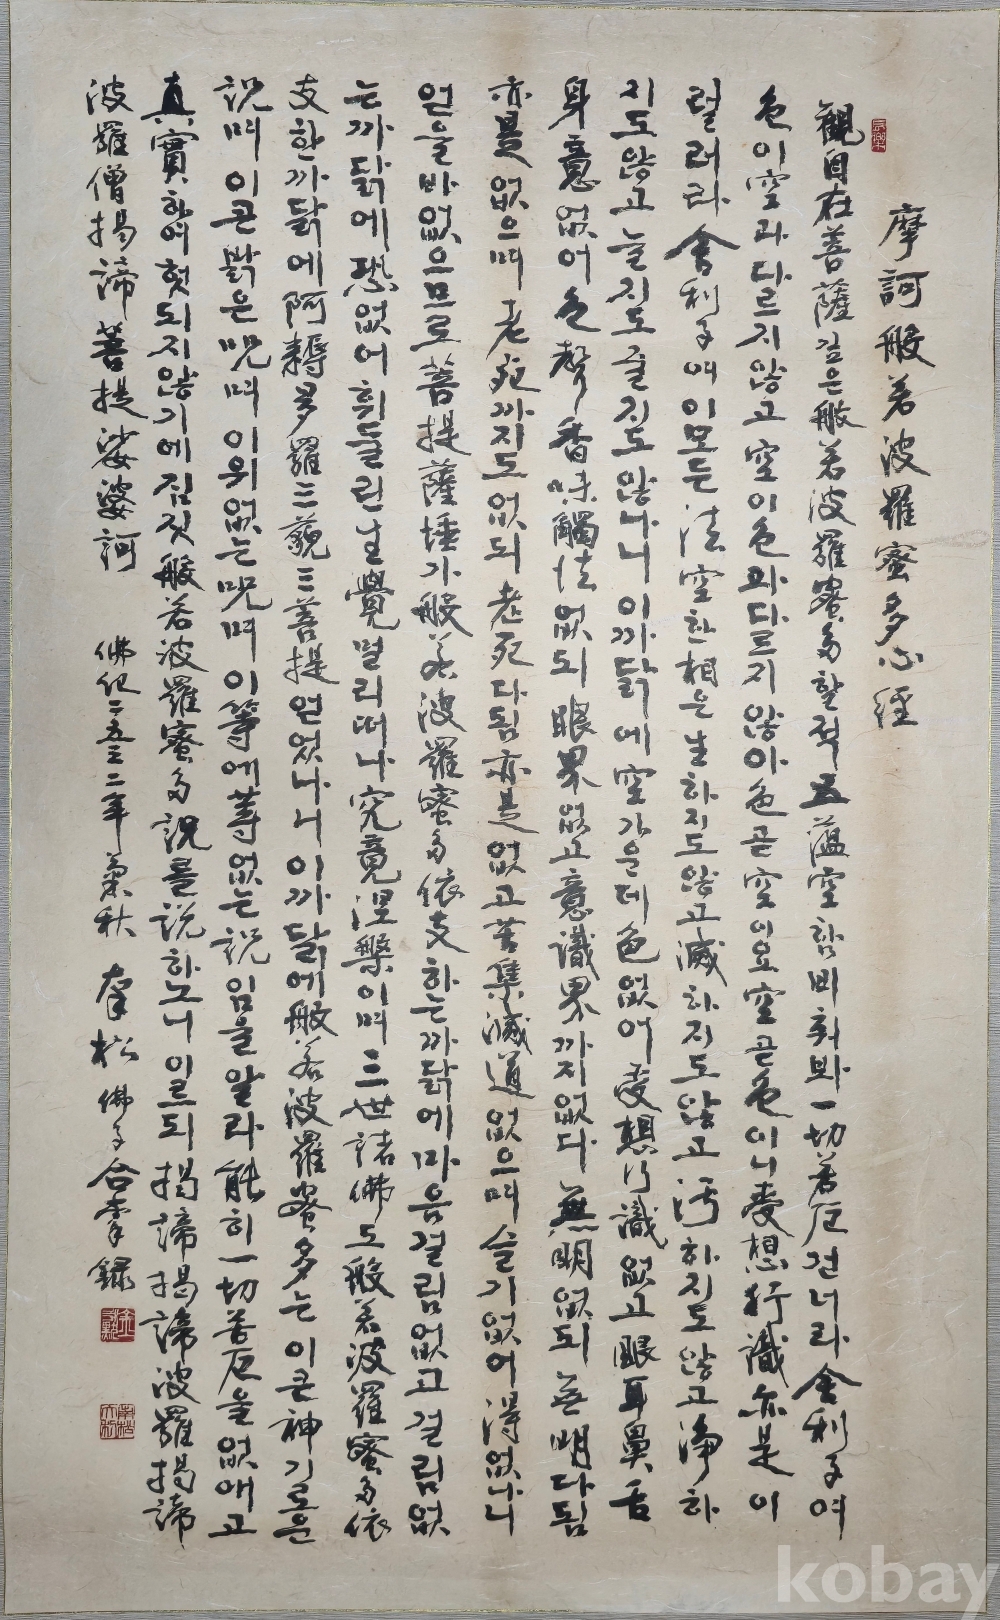 摩訶般若波羅蜜多心經
觀自在菩薩깊은般若波羅蜜多할적五蘊空함비춰봐一切苦厄건너라舍利子여
色이空과다르지않고空이色과다르지않아色곧空이요空곧色이니受想行識亦是이
럴러라舍利子여이모든法空한相은生하지도않고滅하지도않고汚하지도않고淨하
지도않고늘지도줄지도않나니이까닭에空가운데色없어受想行識없고眼耳鼻舌
身意없어色聲香味觸法없되眼界없고意識界까지없다無明없되無明다됨
亦是없으며老死까지도없되老死다됨亦是없고苦集滅道없으며슬기없어得없나니
얻을바없으므로菩提薩埵가般若波羅蜜多依支하는까닭에마음걸림없고걸림없
는까닭에恐없어휘둘린生覺멀리떠나究竟涅槃이며三世諸佛도般若波羅蜜多依
支한까닭에阿耨多羅三藐三菩提얻었나니이까닭에般若波羅蜜多는이큰神기로운
呪며이큰밝은呪며이위없는呪며이等에等없는說임을알라能히一切苦厄을없애고
真實하여헛되지않기에짐짓般若波羅蜜多說를說하노니이르되揭諦揭諦波羅揭諦
波羅僧揭諦菩提娑婆訶 佛紀二五三二年 秋 松佛子合掌錄
kobay